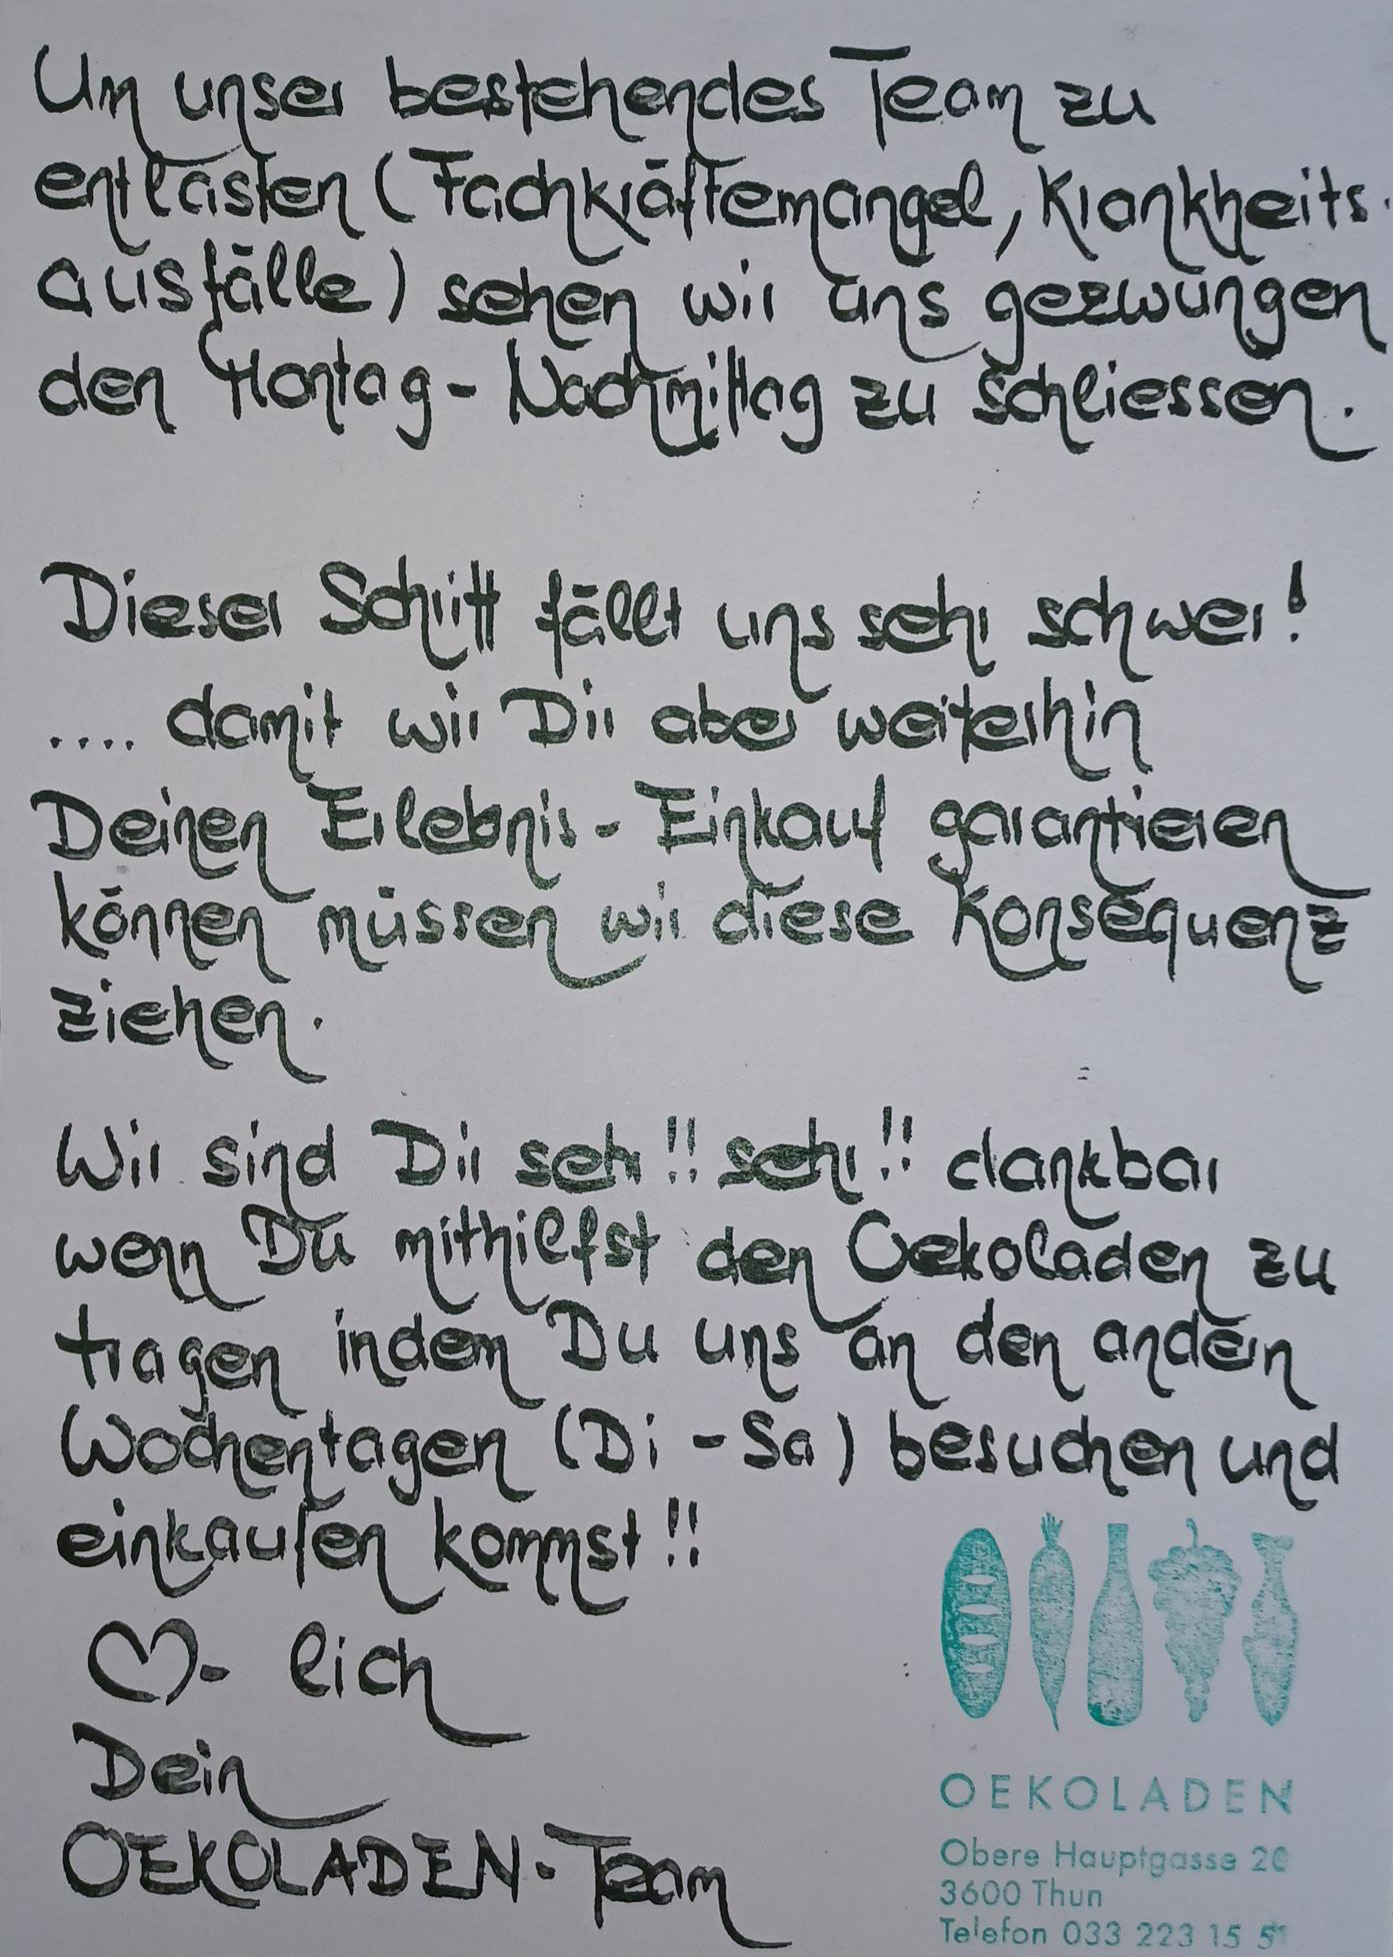 Um unser bestehendes Team zu
entlasten (Fachkräftemangel, Krankheits-
ausfälle) sehen wir uns gezwungen
den Montag-Nachmittag zu schliessen.
Dieser Schritt fällt uns sehr schwer!
.... damit wir Dir aber weiterhin
Deinen Erlebnis-Einkauf garantieren
können müssen wir diese Konsequenz
ziehen.
Wir sind Dir sehr!! sehr!! dankbar
wenn Du mithilfst den Oekoladen zu
tragen indem Du uns an den andern
Wochentagen (Di-Sa) besuchen und
einkaufen kommst!!
♡-lich
Dein
OEKOLADEN-Team
OEKOLADEN
Obere Hauptgasse
3600 Thun
Telefon 033 223 15